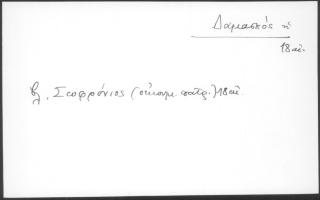 Δαμασκός
18 αἰ.
βλ. Σωφρόνιος (οἰκουμ. πατρ.) 18 αἰ.